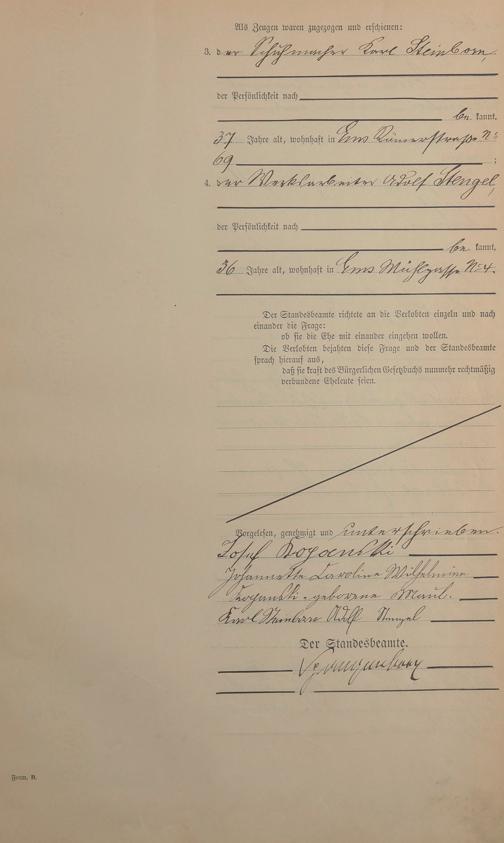 Als Zeugen waren zugezogen und erschienen:
3. der Schuhmacher Karl Steinborn,
der Persönlichkeit nach
be kannt,
37 Jahre alt, wohnhaft in Ems Römerstraße No
69 ;
4. der Werklarbeiter Adolf Stengel,
der Persönlichkeit nach
be kannt,
36 Jahre alt, wohnhaft in Ems Mühlgasse No 4.
Der Standesbeamte richtete an die Verlobten einzeln und nach
einander die Frage:
ob sie die Ehe mit einander eingehen wollen.
Die Verlobten bejahten diese Frage und der Standesbeamte
sprach hierauf aus,
daß sie kraft des Bürgerlichen Gesetzbuchs nunmehr rechtmäßig
verbundene Eheleute seien.
Vorgelesen, genehmigt und unterschrieben.
Josef
Johannette Caroline Wilhelmine
geborene Maul.
Karl Steinborn Adolf Stengel
Der Standesbeamte.
Form. B.